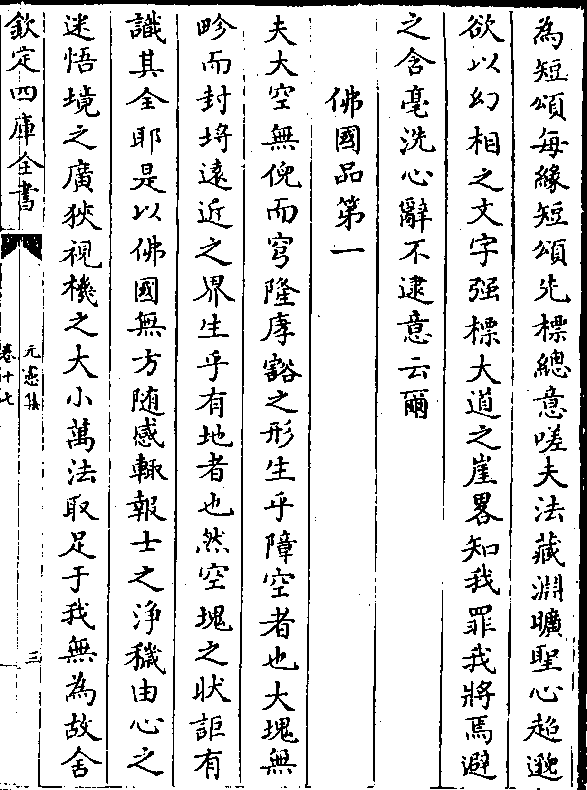 為短頌毎緣短頌先標總意嗟夫法藏淵曠聖心超邈
欲以幻相之文字强標大道之崖畧知我罪我將焉避
之含毫洗心辭不逮意云爾
佛國品第一
夫大空無倪而穹隆庨豁之形生乎障空者也大塊無
畛而封埒遠近之界生乎有地者也然空塊之狀詎有
識其全耶是以佛國無方随感輙報士之淨穢由心之
迷悟境之廣狹視機之大小萬法取足于我無為故舍
欽定四庫全書
元憲集
卷十七
三